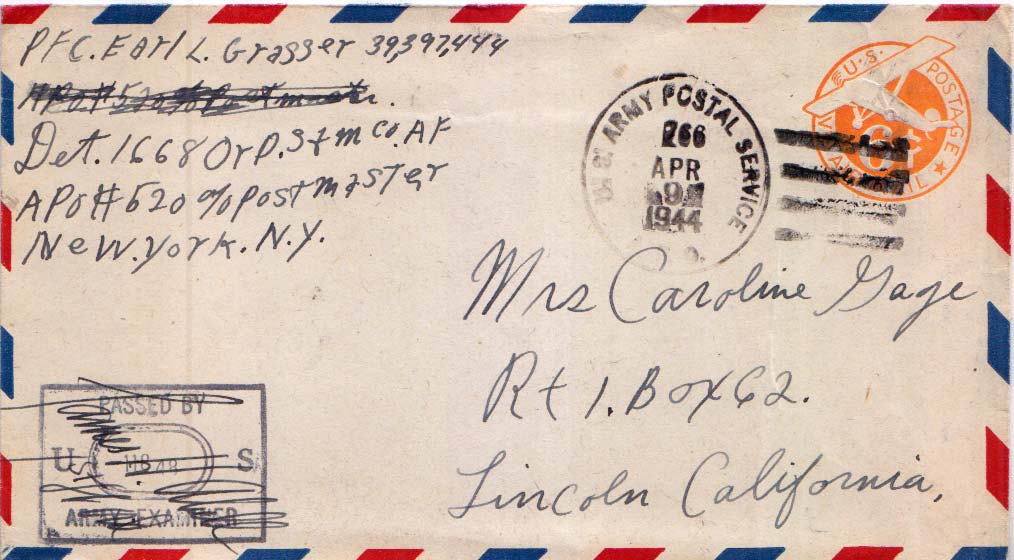 PFC. Earl L. Grasser 39,397,444
APO#520 c/o Postmaster.
Det. 1668 Orp. S+m co. AF
APO# 520 c/o Postmaster
New. York. N.Y.
U.S. ARMY POSTAL SERVICE
APR
9
1944
U.S. POSTAGE
6¢
VIA AIR MAIL
Mrs Caroline Gage
Rt 1. Box 62.
Lincoln California,
PASSED BY
U S
ARMY EXAMINER